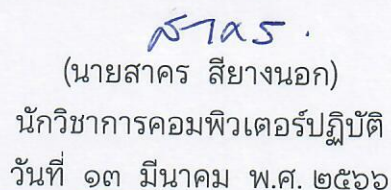 สาคร.
(นายสาคร สียางนอก)
นักวิชาการคอมพิวเตอร์ปฏิบัติ
วันที่ ๑๓ มีนาคม พ.ศ. ๒๕๖๖